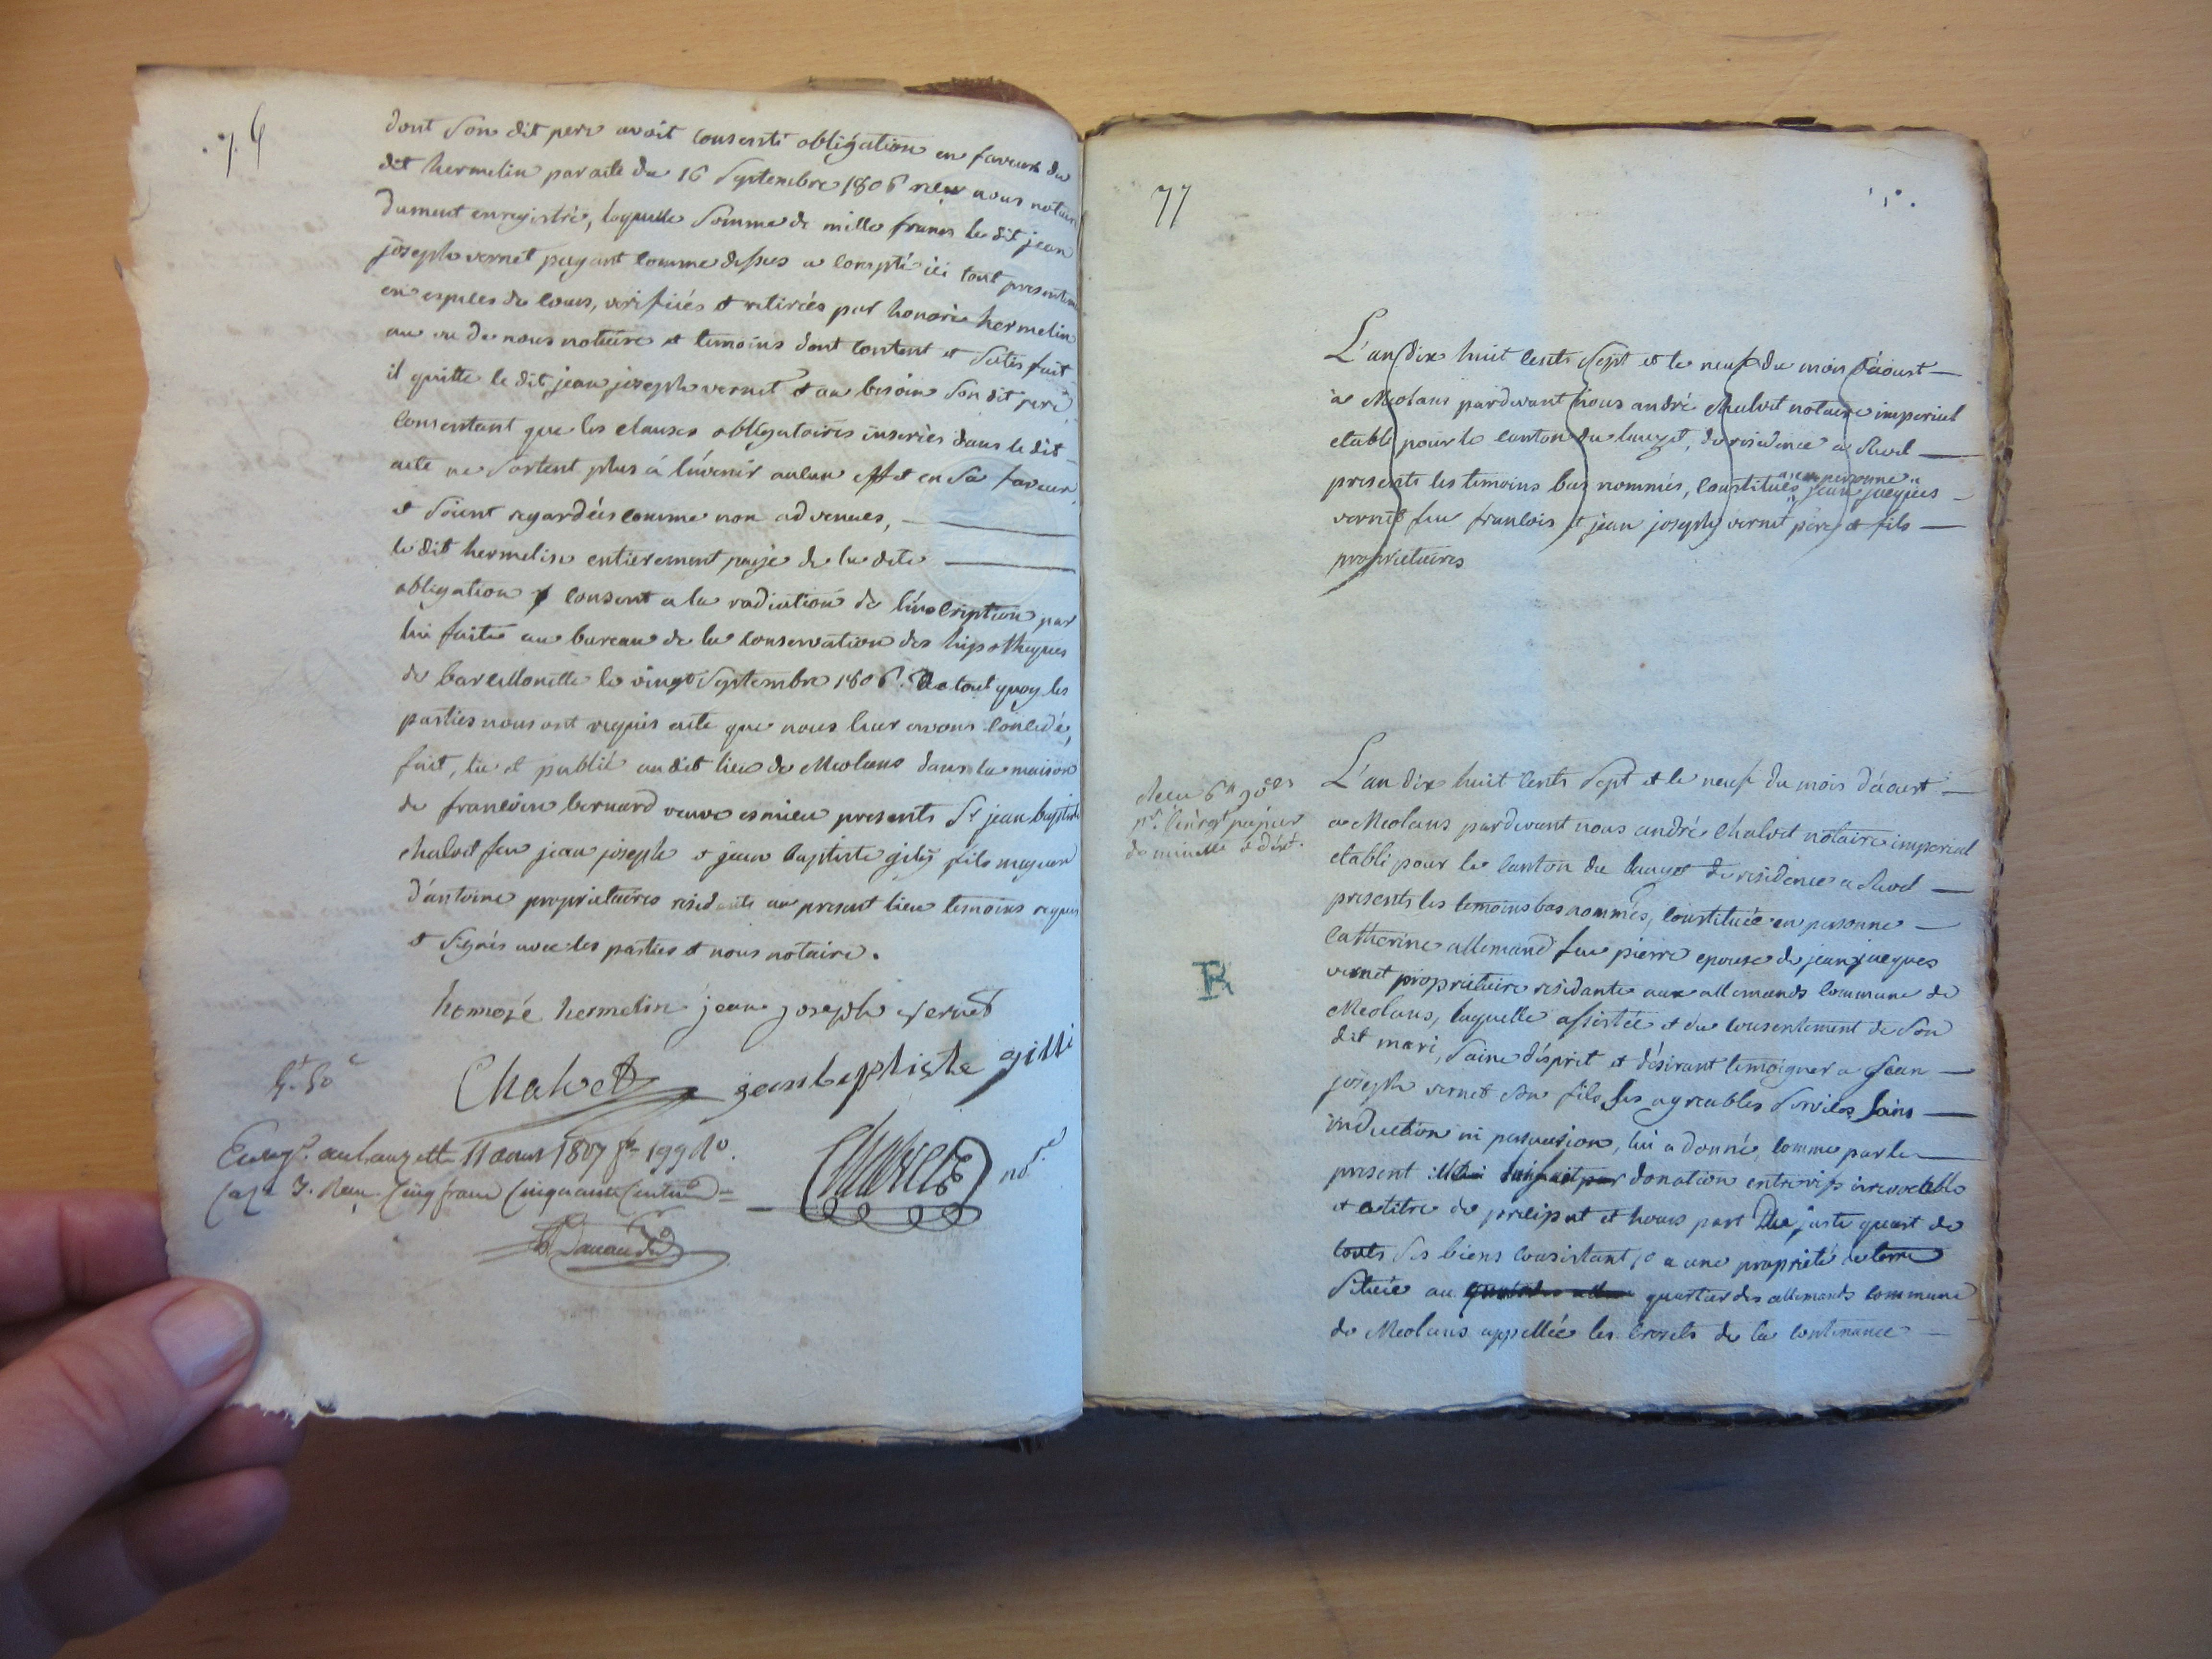 dont son dit pere avoit consenti obligation en faveur du
dit hermelin par acte du 16 septembre 1806 rieu nous notaire
dument enregistré, laquelle somme de mille francs le dit jean
joseph vernet payant comme dessus a compté ici tout presentem
en especes de cours, verifiées et retirées par honoré hermelin
au vu de nous notaire et temoins dont content et satisfait
il quitte le dit jean joseph vernet et au besoin son dit pere
consentant que les clauses obligatoires inserées dans le dit
acte ne sortent plus à l'avenir aulun effet en sa faveur,
et soient regardées comme non advenues,
le dit hermelin entierement payé de la dite
obligation consent a la radiation de l'inscription par
lui faite au bureau de la conservation des hipotheques
de barcellonette le vingt septembre 1806. De tout quoy les
parties nous ont requis acte que nous leur avons concédé,
fait, lu et publié au dit lieu de Meolans dans la maison
de francoise bernard veuve esmieu presents Sr jean baptiste
chalvet feu jean joseph et jean baptiste gilly fils majeur
d'antoine proprietaires residents au present lieu temoins requis
et signés avec les parties et nous notaire.
honoré hermelin jean joseph vernet
Chalvet jean baptiste gilli
5f 50c
Enreg.é au Lauzet le 11 aout 1807 fo 199 Ro.
Case 3. Reçu Cinq francs Cinquante Centimes =
Chalvet nore
77
L'an dix huit cents sept et le neuf du mois d'aoust
a Meolans pardevant nous andré Chalvet notaire imperial
etabli pour le canton du lauzet, de residence a Revel
presents les temoins bas nommés, constitués en personne jean jacques
vernet feu francois et jean joseph vernet pere et fils
proprietaires
Reçu 6f 90es
pr. l'enregt papier
de minutte
L'an dix huit cents sept et le neuf du mois d'aoust
a Meolans pardevant nous andré Chalvet notaire imperial
etabli pour le canton du lauzet de residence a Revel
presents les temoins bas nommés, constituée en personne
Catherine allemand feu pierre epouse de jean jacques
vernet proprietaire residante aux allemands commune de
Meolans, laquelle assistée et du consentement de son
dit mari, saine d'esprit et désirant temoigner a jean
joseph vernet son fils ses agreables services sans
induction ni persuasion, lui a donné, comme par le
present donation entrevifs irrevocable
et a titre de préciput et hours part Du juste quart de
touts ses biens consistant 1o a une propriété de terre
située au quartier des allemands commune
de Meolans appellée les crosets de la contenance
R